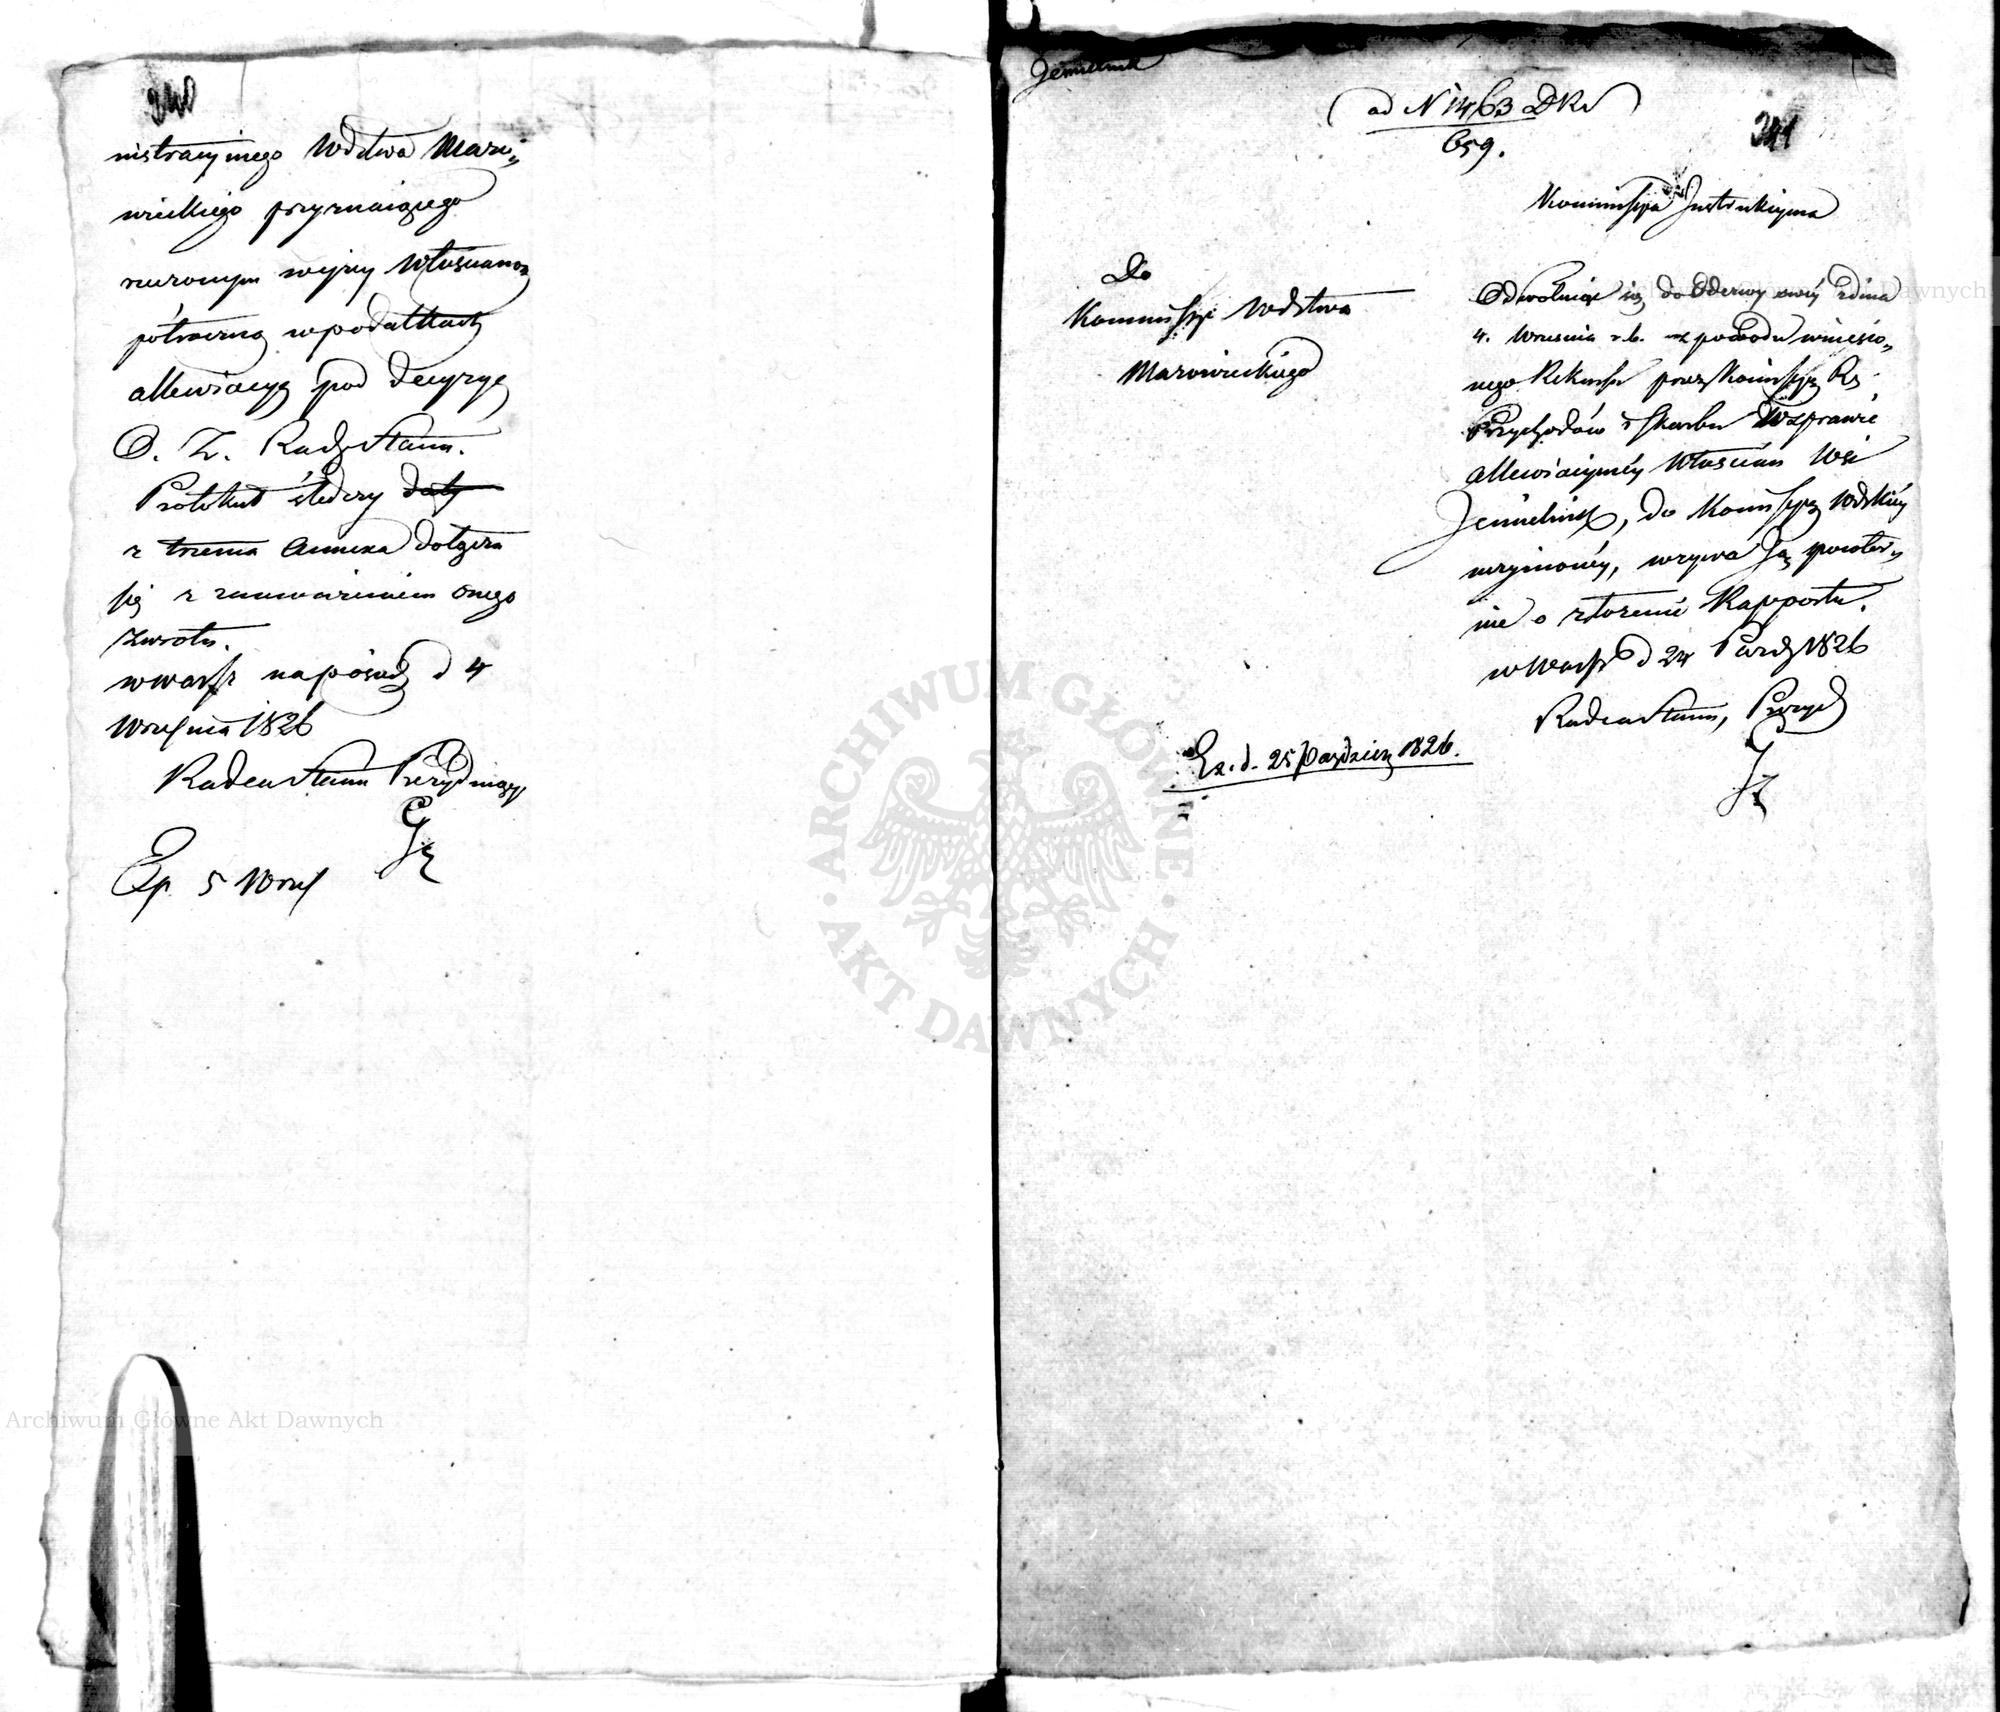 240
nistracyinego Wdztwa Mazo„
wieckiego przyznaiącego
rzeczonym wyżey Włościanom
półroczną w podatkach
allewiacyą pod decyzyę
O. Z. Rady Stanu.
Protokuł śledczy daty
z trzema Annexa dołącza
się z zamówieniem onego
Zwrotu.
w Warsz na posiedz d 4
Września 1826
Radca Stanu Prezyduiący
Exp. 5 Wrześ
Jemielnik
ad N 1463 DKs
659.
341
Kommissya Instrukcyina
Do
Kommissyi Wdztwa
Mazowieckiego
Odwołuiąc się do Odezwy swéy z dnia
4. Września r. b. z powodu wniesio„
nego Rekursu przez Kommissyę Rz
Przychodów i Skarbu w sprawie
allewiacyinéy Włościan Wsi
Jemielnik, do Kommissyi Wdzkiéy
uczynionéy, wzywa Ją powtór„
nie o złożenie Rapportu.
w Warsz d 24 Paźdz 1826
Radca Stanu, Prezyd
Ex. d. 25 Paździer 1826.
ARCHIWUM GŁÓWNE
AKT DAWNYCH
Archiwum Główne Akt Dawnych